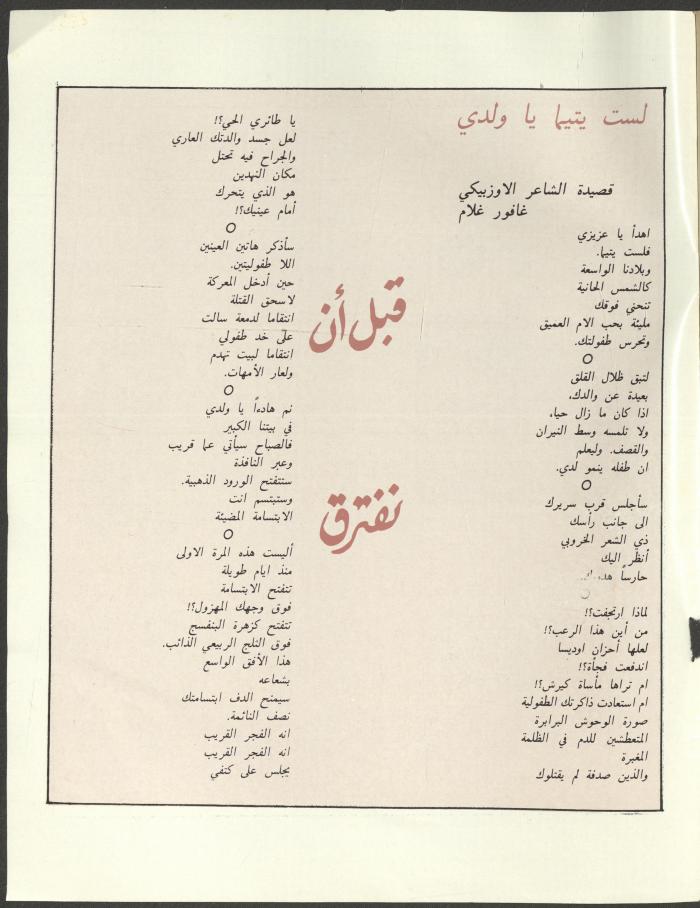 لست يتيما يا ولدي
قصيدة الشاعر الاوزبيكي
غافور غلام
اهدأ يا عزيزي
فلست يتيما.
وبلادنا الواسعة
كالشمس الحانية
تنحني فوقك
مليئة بحب الام العميق
وتحرس طفولتك.
O
لتبق ظلال القلق
بعيدة عن والدك،
اذا كان ما زال حيا،
ولا تلمسه وسط النيران
والقصف. وليعلم
ان طفله ينمو لدي.
O
سأجلس قرب سريرك
الى جانب رأسك
ذي الشعر الخروبي
أنظر اليك
حارساً
O
لماذا ارتجفت؟!
من أين هذا الرعب؟!
لعلها أحزان اوديسا
اندفعت فجأة؟!
ام تراها مأساة كيرش؟!
ام استعادت ذاكرتك الطفولية
صورة الوحوش البرابرة
المتعطشين للدم في الظلمة
المغبرة
والذين صدفة لم يقتلوك
قبل أن
نفترق
يا طائري الحي؟!
لعل جسد والدتك العاري
والجراح فيه تحتل
مكان النهدين
هو الذي يتحرك
أمام عينيك؟!
O
سأذكر هاتين العينين
اللا طفوليتين.
حين أدخل المعركة
لاسحق القتلة
انتقاما لدمعة سالت
على خد طفولي
انتقاما لبيت تهدم
ولعار الأمهات.
O
نم هادءاً يا ولدي
في بيتنا الكبير
فالصباح سيأتي عما قريب
وعبر النافذة
ستتفتح الورود الذهبية.
وستبتسم انت
الابتسامة المضيئة
O
أليست هذه المرة الاولى
منذ ايام طويلة
تتفتح الابتسامة
فوق وجهك المهزول؟!
تتفتح كزهرة البنفسج
فوق الثلج الربيعي الذائب.
هذا الأفق الواسع
بشعاعه
سيمنح الدف ابتسامتك
نصف النائمة.
انه الفجر القريب
انه الفجر القريب
يجلس على كتفي